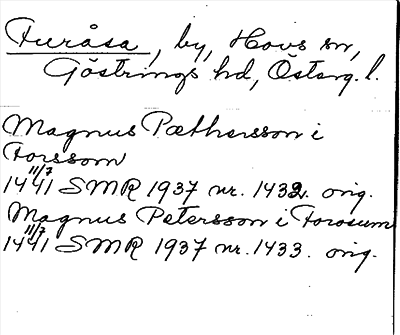 Furåsa, by, Hovs sn,
Göstrings hd, Österg. l.
Magnus Pæthersson i
Forssom
11/7
1441 SMR 1937 nr. 1432. orig.
Magnus Petersson i Forosum
11/7
1441 SMR 1937 nr. 1433. orig.